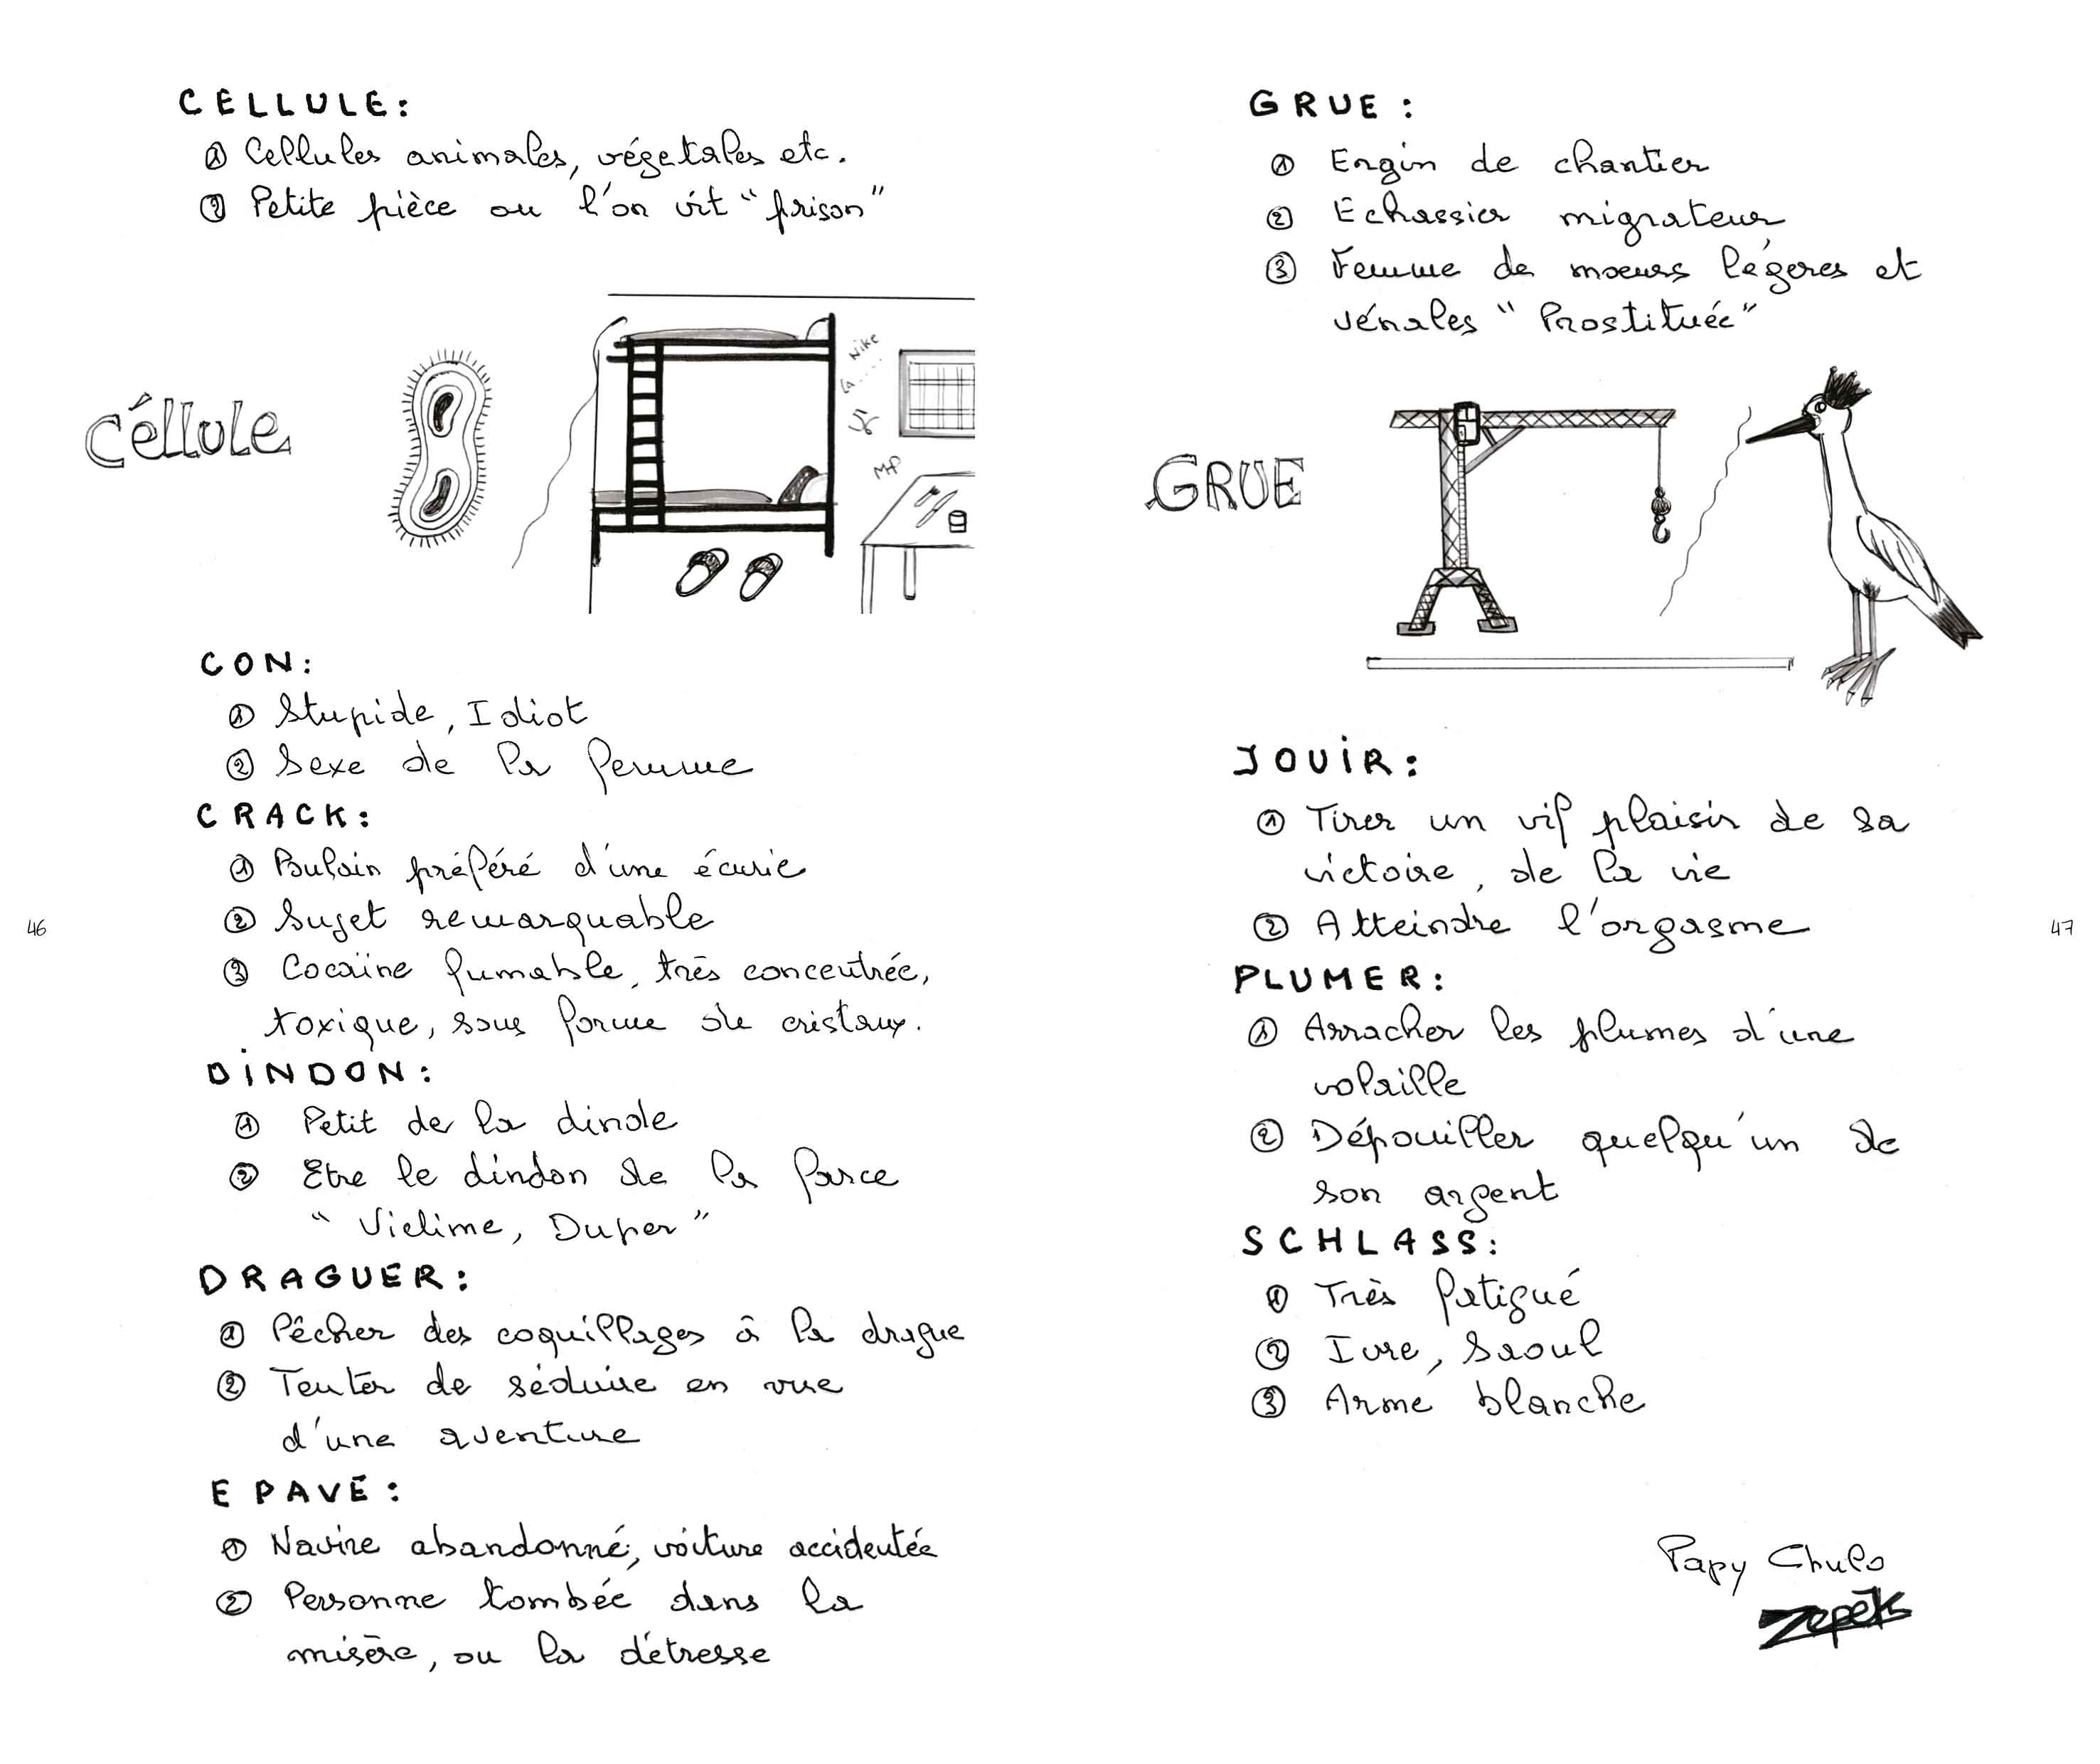 CELLULE:
① Cellules animales, végétales etc.
② Petite pièce ou l'on vit "prison"
Céllule
Nike
la.....
MP
CON:
① Stupide, Idiot
② Sexe de la femme
CRACK:
① Pulain préféré d'une écurie
② Sujet remarquable
③ Cocaïne fumable, très concentrée,
toxique, sous forme de cristaux.
DINDON:
① Petit de la dinde
② Etre le dindon de la farce
"Victime, Duper"
DRAGUER:
① Pêcher des coquillages à la drague
② Tenter de séduire en vue
d'une aventure
EPAVE:
① Navire abandonné, voiture accidentée
② Personne tombée dans la
misère, ou la détresse
46
GRUE:
① Engin de chantier
② Echassier migrateur
③ Femme de moeurs légères et
vénales "Prostituée"
GRUE
JOUIR:
① Tirer un vif plaisir de sa
victoire, de la vie
② Atteindre l'orgasme
PLUMER:
① Arracher les plumes d'une
volaille
② Dépouiller quelqu'un de
son argent
SCHLASS:
① Très fatigué
② Ivre, Saoul
③ Arme blanche
Papy Chulo
Zepek
47